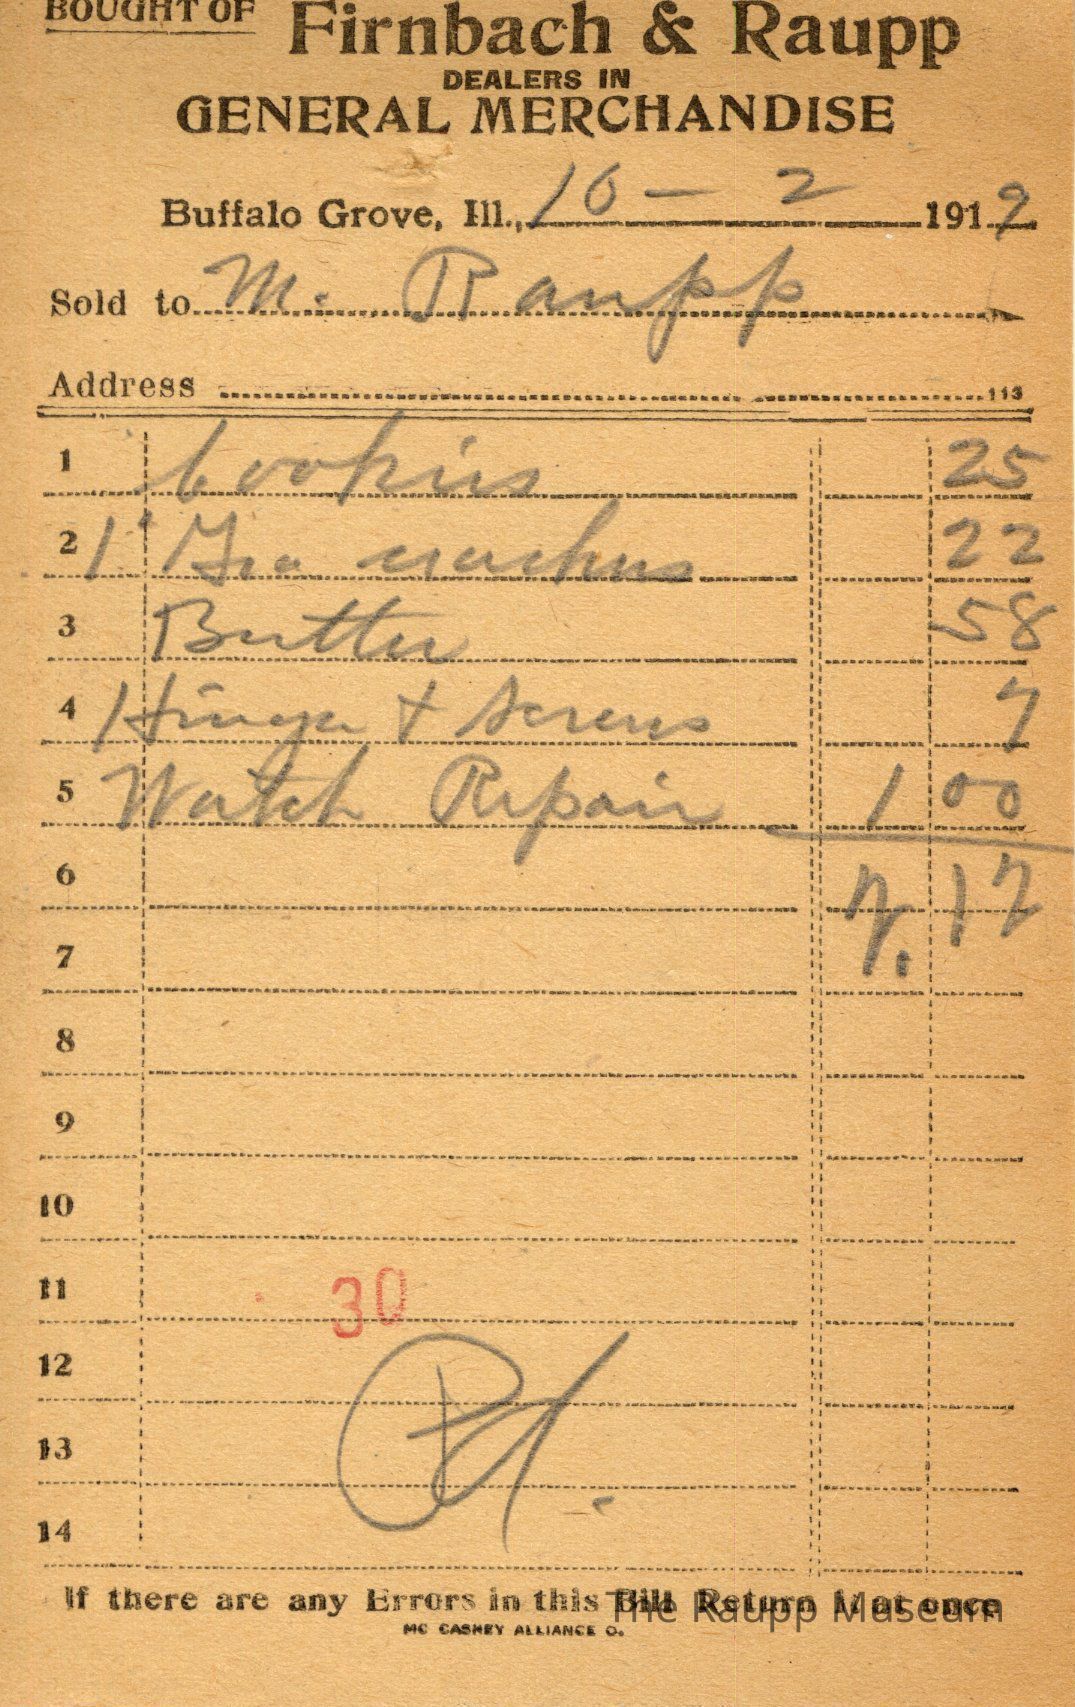 BOUGHT OF Firnbach & Raupp
DEALERS IN
GENERAL MERCHANDISE
Buffalo Grove, Ill., 10 - 2 1919
Sold to M. Raupp
Address 113
1 Cookies 25
2 1 Gra crackers 22
3 Butter 58
4 Hinge + Screws 7
5 Watch Repair 1 00
6 2.12
7
8
9
10
11 30
12
13 Pd.
14
If there are any Errors in this Bill Return it at once
MC CASKEY ALLIANCE O.
The Raupp Museum